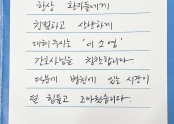 항상 환자들에게
친절하고 상냥하게
대해 주시는 '이소영'
간호사님을 칭찬합니다.
덕분에 병원에 있는 시간이
덜 힘들고 고마웠습니다.